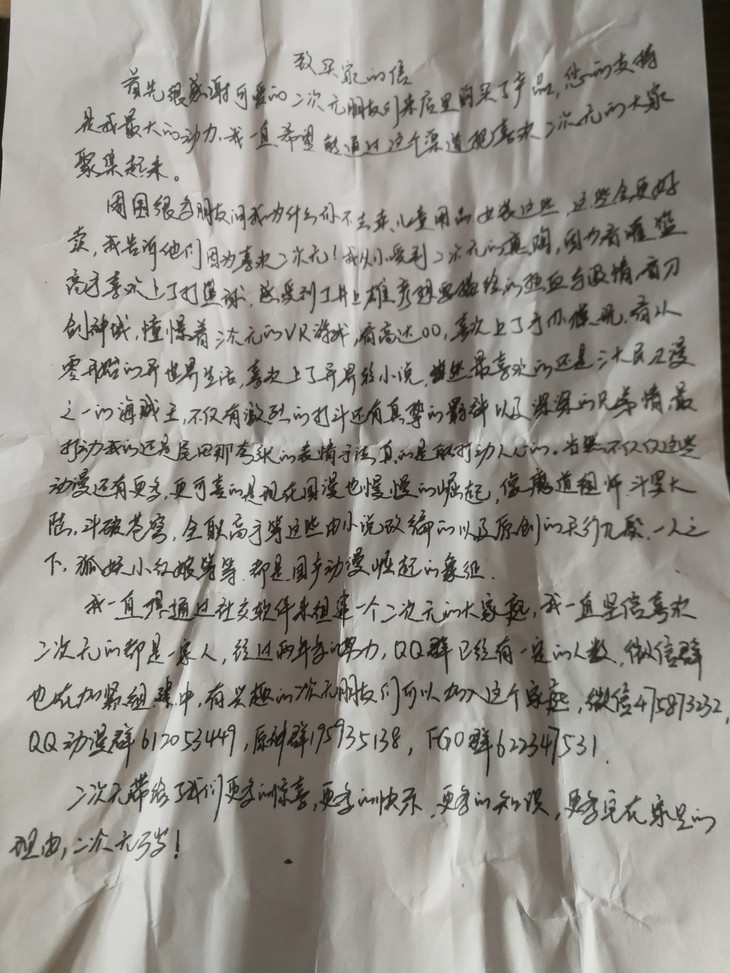 致买家的信
首先很感谢可爱的二次元朋友们来店里购买了产品,您的支持
是我最大的动力,我一直希望能通过这个渠道把喜欢二次元的大家
聚集起来。
周围很多朋友问我为什么你不去卖儿童用品,女装这些,这些会更好
卖,我告诉他们因为喜欢二次元!我从小受到二次元的熏陶,因为看灌篮
高手喜欢上了打篮球,感受到了井上雄彦想要描绘的热血与激情,看刀
剑神域,憧憬着二次元的VR游戏,看高达00,喜欢上了手办模玩,看从
零开始的异世界生活,喜欢上了异界轻小说,当然最喜欢的还是三大民工漫
之一的海贼王,不仅有激烈的打斗还有真挚的羁绊以及深深的兄弟情,最
打动我的还是尾田那夸张的表情手法,真的是最打动人心的。当然不仅仅这些
动漫还有更多,更可喜的是现在国漫也慢慢的崛起,像魔道祖师,斗罗大
陆,斗破苍穹,全职高手等这些由小说改编的以及原创的天行九歌,一人之
下,狐妖小红娘等等,都是国产动漫崛起的象征.
我一直想通过社交软件来组建一个二次元的大家庭,我一直坚信喜欢
二次元的都是一家人,经过两年多的努力,QQ群已经有一定的人数,微信群
也在加紧组建中,有兴趣的二次元朋友们可以加入这个家庭,微信475873232,
QQ动漫群612053449,原神群195935138,FGO群622347531.
二次元带给了我们更多的惊喜,更多的快乐,更多的知识,更多宅在家里的
理由,二次元万岁!